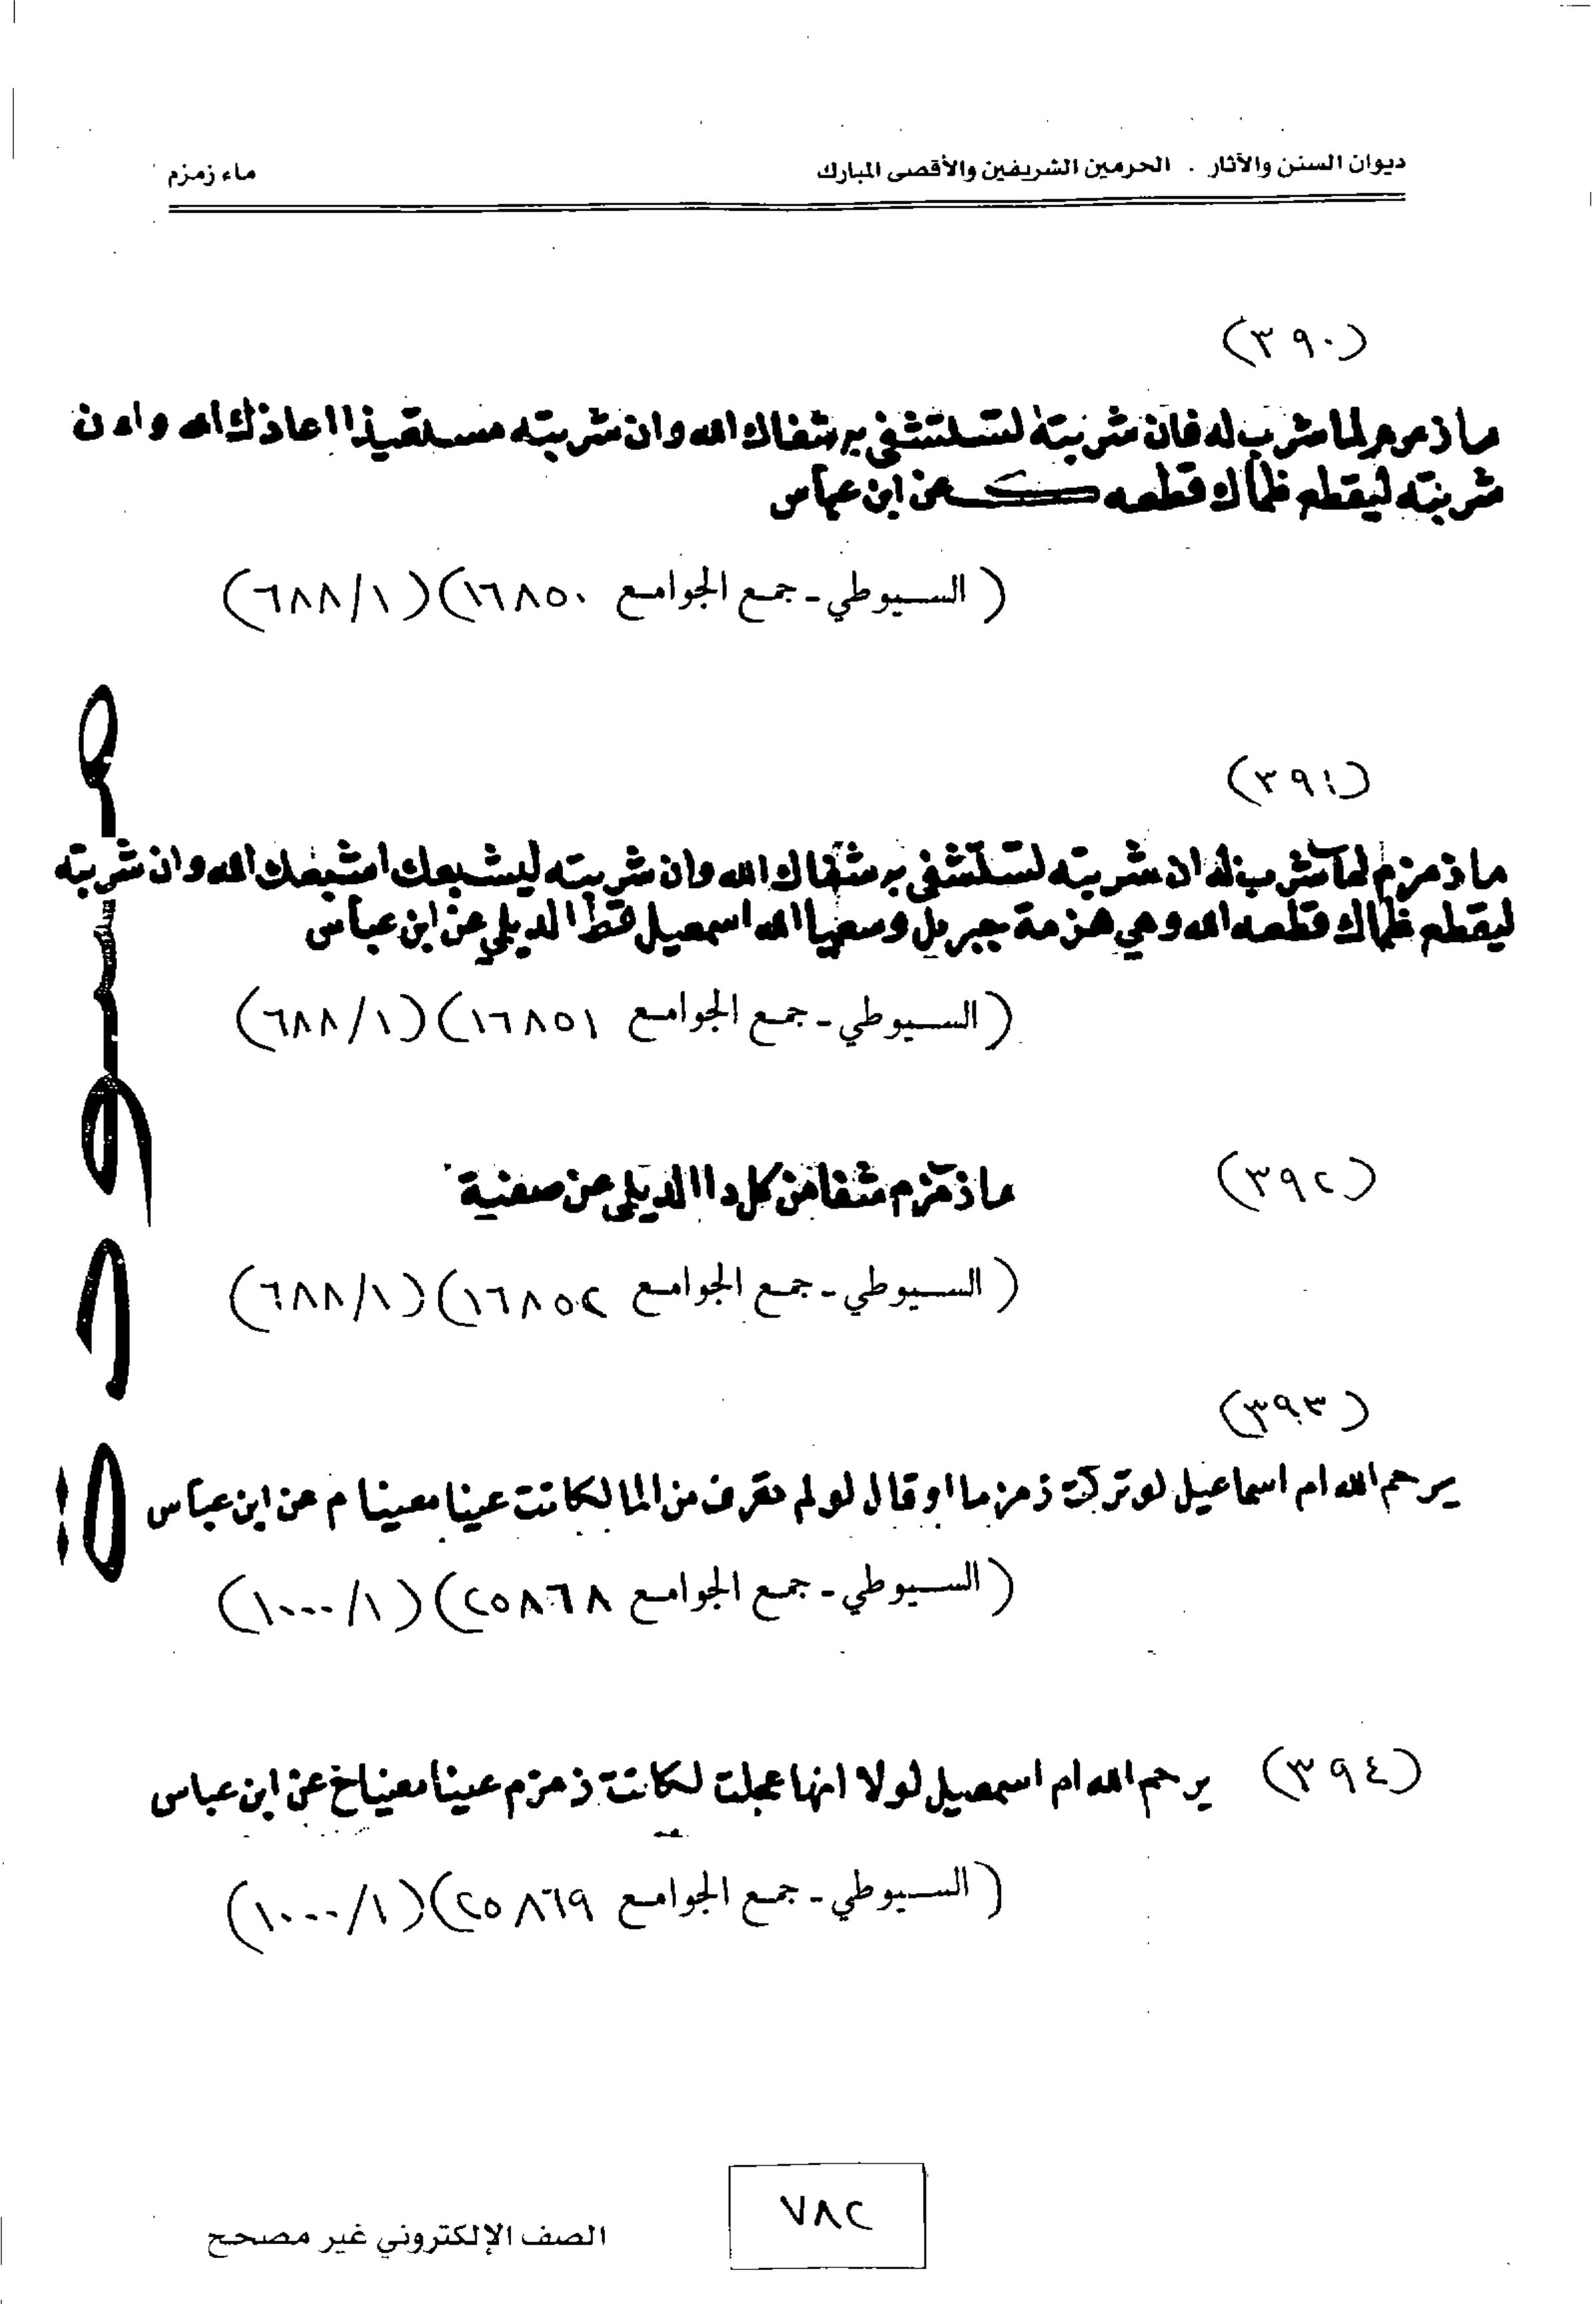 ديوان السنن والآثار . الحرمين الشريفين والأقصى المبارك
ماء زمزم
(٣٩٠)
ما زمزم لما شرب له فان شربته لتستشفى به شفاك الله وان شربته مستعيذا اعاذك الله وان
شربته ليقطع ظماك قطعه ك عن ابن عباس
(السيوطي - جمع الجوامع ١٦٨٥٠) (٦٨٨/١)
(٣٩١)
ما زمزم لما شرب له ان شربته لتستشفى به شفاك الله وان شربته ليشبعك اشبعك الله وان شربته
ليقطع ظماك قطعه الله وهي هزمة جبريل وسقيا الله اسمعيل قط الديلي عن ابن عباس
(السيوطي - جمع الجوامع ١٦٨٥١) (٦٨٨/١)
(٣٩٢) ما زمزم شفا من كل دا الديلى عن صفية
(السيوطي - جمع الجوامع ١٦٨٥٢) (٦٨٨/١)
(٣٩٣)
يرحم الله ام اسماعيل لو تركت زمزم او قال لو لم تغرف من الما لكانت عينا معينا م عن ابن عباس
(السيوطي - جمع الجوامع ٢٥٨٦٨) (١٠٠٠/١)
(٣٩٤) يرحم الله ام اسمعيل لولا انها عجلت لكانت زمزم عينا معينا خ عن ابن عباس
(السيوطي - جمع الجوامع ٢٥٨٦٩) (١٠٠٠/١)
٧٨٢
الصف الإلكتروني غير مصحح